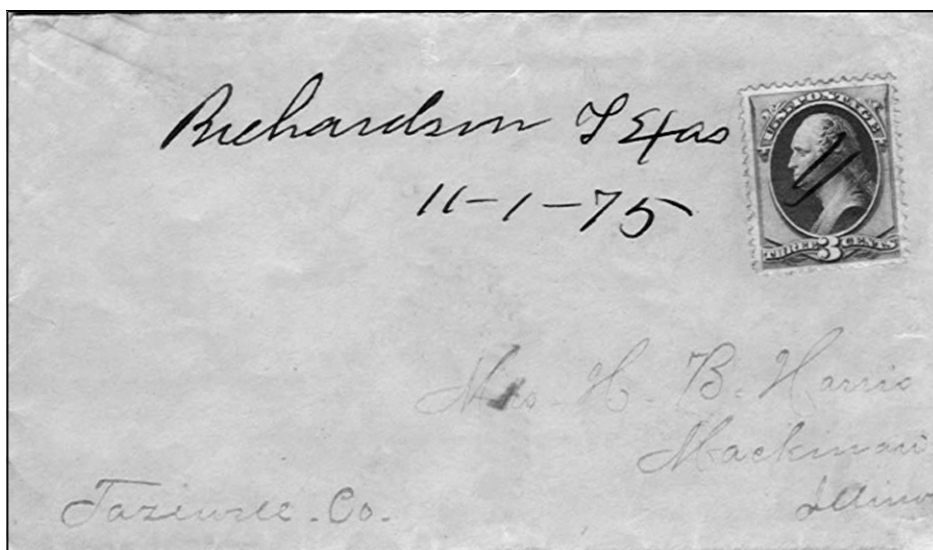 Richardson Texas
11-1-75
U.S. POSTAGE
THREE 3 CENTS
Mrs. H. B. Harris
Mackinaw
Illinois
Tazewell. Co.